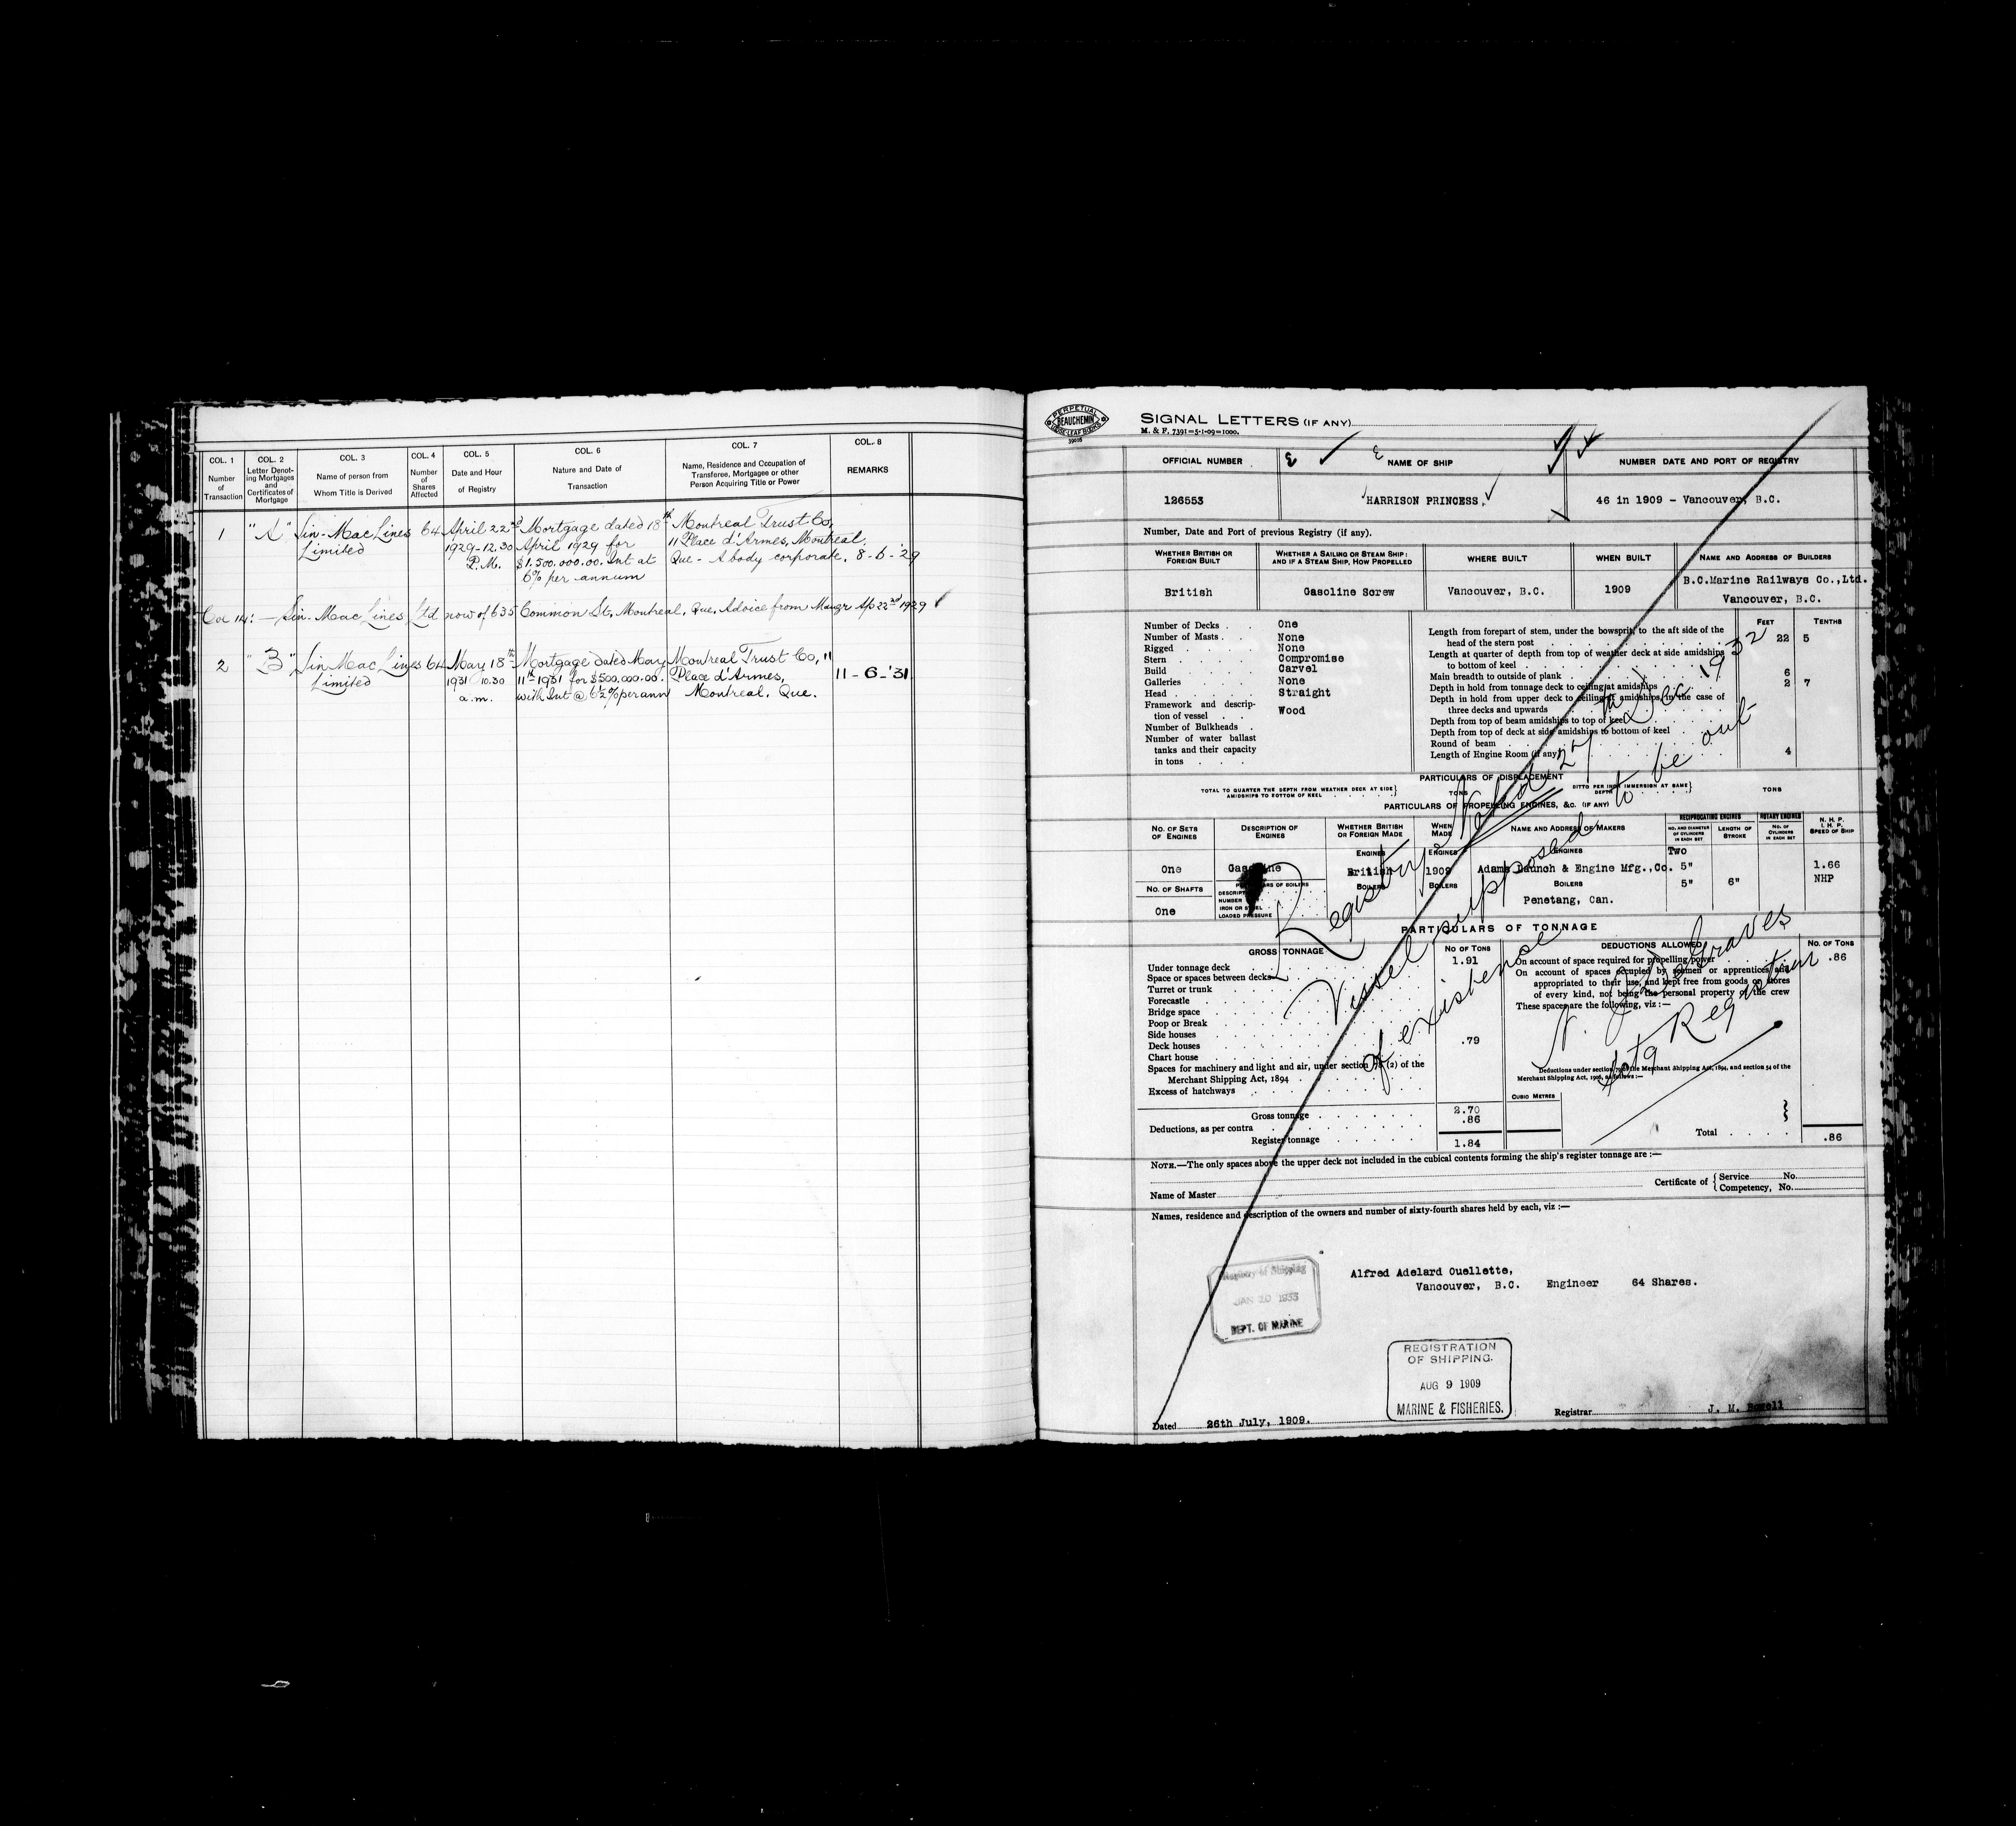 COL. 1 COL. 2 COL. 3 COL. 4 COL. 5 COL. 6 COL. 7 COL. 8
Number of Transaction
Letter Denoting Mortgages and Certificates of Mortgage
Name of person from Whom Title is Derived
Number of Shares Affected
Date and Hour of Registry
Nature and Date of Transaction
Name, Residence and Occupation of Transferee, Mortgagee or other Person Acquiring Title or Power
REMARKS
1 "A" Sin-Mac Lines 64 April 22nd Mortgage dated 18th Montreal Trust Co,
Limited 1929-12.30 April 1929 for 11 Place d'Armes, Montreal.
P.M. $1.500.000.00. Int at Que - A body corporate. 8-6-'29
6% per annum
Sin-Mac Lines Ltd now of 635 Common St. Montreal, Que. Advice from Mangr Ap 22nd 1929
2 "B" Sin Mac Lines 64 May 18th Mortgage dated May Montreal Trust Co, 11
Limited 1931 10.30 11th 1931 for $500.000.00. Place d'Armes, 11-6-'31
a.m. with Int @ 6½% per ann Montreal. Que.
PERPETUAL
BEAUCHEMIN
LOOSE-LEAF BOOKS
SIGNAL LETTERS (IF ANY)
M. & F. 7391=5-1-09=1000.
OFFICIAL NUMBER NAME OF SHIP NUMBER DATE AND PORT OF REGISTRY
126553 HARRISON PRINCESS 46 in 1909 - Vancouver, B.C.
Number, Date and Port of previous Registry (if any).
WHETHER BRITISH OR FOREIGN BUILT
WHETHER A SAILING OR STEAM SHIP: AND IF A STEAM SHIP, HOW PROPELLED
WHERE BUILT
WHEN BUILT
NAME AND ADDRESS OF BUILDERS
British Gasoline Screw Vancouver, B.C. 1909 B.C.Marine Railways Co.,Ltd.
Vancouver, B.C.
Number of Decks One
Number of Masts None
Rigged None
Stern Compromise
Build Carvel
Galleries None
Head Straight
Framework and description of vessel Wood
Number of Bulkheads
Number of water ballast
tanks and their capacity
in tons
FEET TENTHS
Length from forepart of stem, under the bowsprit, to the aft side of the
head of the stern post 22 5
Length at quarter of depth from top of weather deck at side amidships
to bottom of keel
Main breadth to outside of plank 6
Depth in hold from tonnage deck to ceiling at amidships 2 7
Depth in hold from upper deck to ceiling at amidships, in the case of
three decks and upwards
Depth from top of beam amidships to top of keel
Depth from top of deck at side amidships to bottom of keel
Round of beam
Length of Engine Room (if any) 4
PARTICULARS OF DISPLACEMENT
TOTAL TO QUARTER THE DEPTH FROM WEATHER DECK AT SIDE AMIDSHIPS TO BOTTOM OF KEEL TONS
DITTO PER INCH IMMERSION AT SAME DEPTH TONS
PARTICULARS OF PROPELLING ENGINES, &C. (IF ANY)
NO. OF SETS OF ENGINES
DESCRIPTION OF ENGINES
WHETHER BRITISH OR FOREIGN MADE
WHEN MADE
NAME AND ADDRESS OF MAKERS
RECIPROCATING ENGINES
NO. AND DIAMETER OF CYLINDERS IN EACH SET
LENGTH OF STROKE
ROTARY ENGINES
NO. OF CYLINDERS IN EACH SET
N. H. P.
I. H. P.
SPEED OF SHIP
ENGINES ENGINES ENGINES Two
One Gasoline British 1909 Adams Launch & Engine Mfg.,Co. 5" 1.66
NO. OF SHAFTS PARTICULARS OF BOILERS BOILERS BOILERS BOILERS 5" 6" NHP
DESCRIPTION
NUMBER
IRON OR STEEL
LOADED PRESSURE
One Penetang, Can.
PARTICULARS OF TONNAGE
GROSS TONNAGE NO OF TONS
Under tonnage deck 1.91
Space or spaces between decks
Turret or trunk
Forecastle
Bridge space
Poop or Break
Side houses
Deck houses .79
Chart house
Spaces for machinery and light and air, under section 78 (2) of the
Merchant Shipping Act, 1894
Excess of hatchways
Gross tonnage 2.70
Deductions, as per contra .86
Register tonnage 1.84
DEDUCTIONS ALLOWED NO. OF TONS
On account of space required for propelling power .86
On account of spaces occupied by seamen or apprentices and
appropriated to their use, and kept free from goods or stores
of every kind, not being the personal property of the crew
These spaces are the following, viz:—
Deductions under section 79 of the Merchant Shipping Act, 1894, and section 54 of the
Merchant Shipping Act, 1906, as follows:—
CUBIC METRES
Total .86
Registry closed 27th Dec. 1932
Vessel supposed to be out
of existence
Actg Registrar
NOTE.—The only spaces above the upper deck not included in the cubical contents forming the ship's register tonnage are :—
Name of Master
Certificate of Service No.
Competency, No.
Names, residence and description of the owners and number of sixty-fourth shares held by each, viz :—
Alfred Adelard Ouellette,
Vancouver, B.C. Engineer 64 Shares.
Registry of Shipping
JAN 20 1933
DEPT. OF MARINE
REGISTRATION
OF SHIPPING.
AUG 9 1909
MARINE & FISHERIES.
Dated 26th July, 1909.
Registrar J. M. Bowell